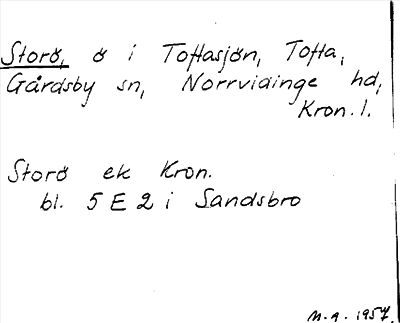 Storö, ö i Toftasjön, Tofta,
Gårdsby sn, Norrvidinge hd,
Kron. l.
Storö ek Kron.
bl. 5 E 2 i Sandsbro
M. g. 1957.